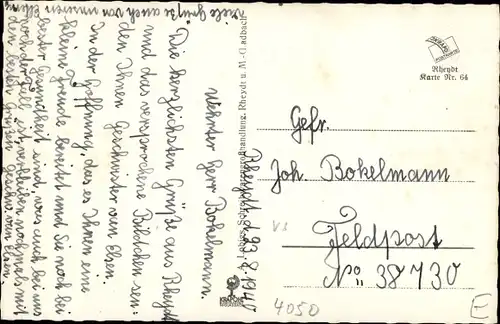 Rheydt, 23.8.1940
Wehrter Herr Bokelmann.
Die herzlichsten Grüße aus Rheydt
und das versprochene Bildchen sen-
den Ihnen Geschwister van Elsen.
In der Hoffnung, das es Ihnen eine
kleine Freude bereitet und Sie noch bei
bester Gesundheit sind, was auch bei uns
noch der Fall ist, verbleiben nochmals mit
den besten Grüßen Geschw. van Elsen.
Viele Grüße auch von unseren Eltern
Rheydt u. M.-Gladbach
Rheydt
Karte Nr. 64
Gefr.
Joh. Bokelmann
Feldpost
No 38730
4050
E